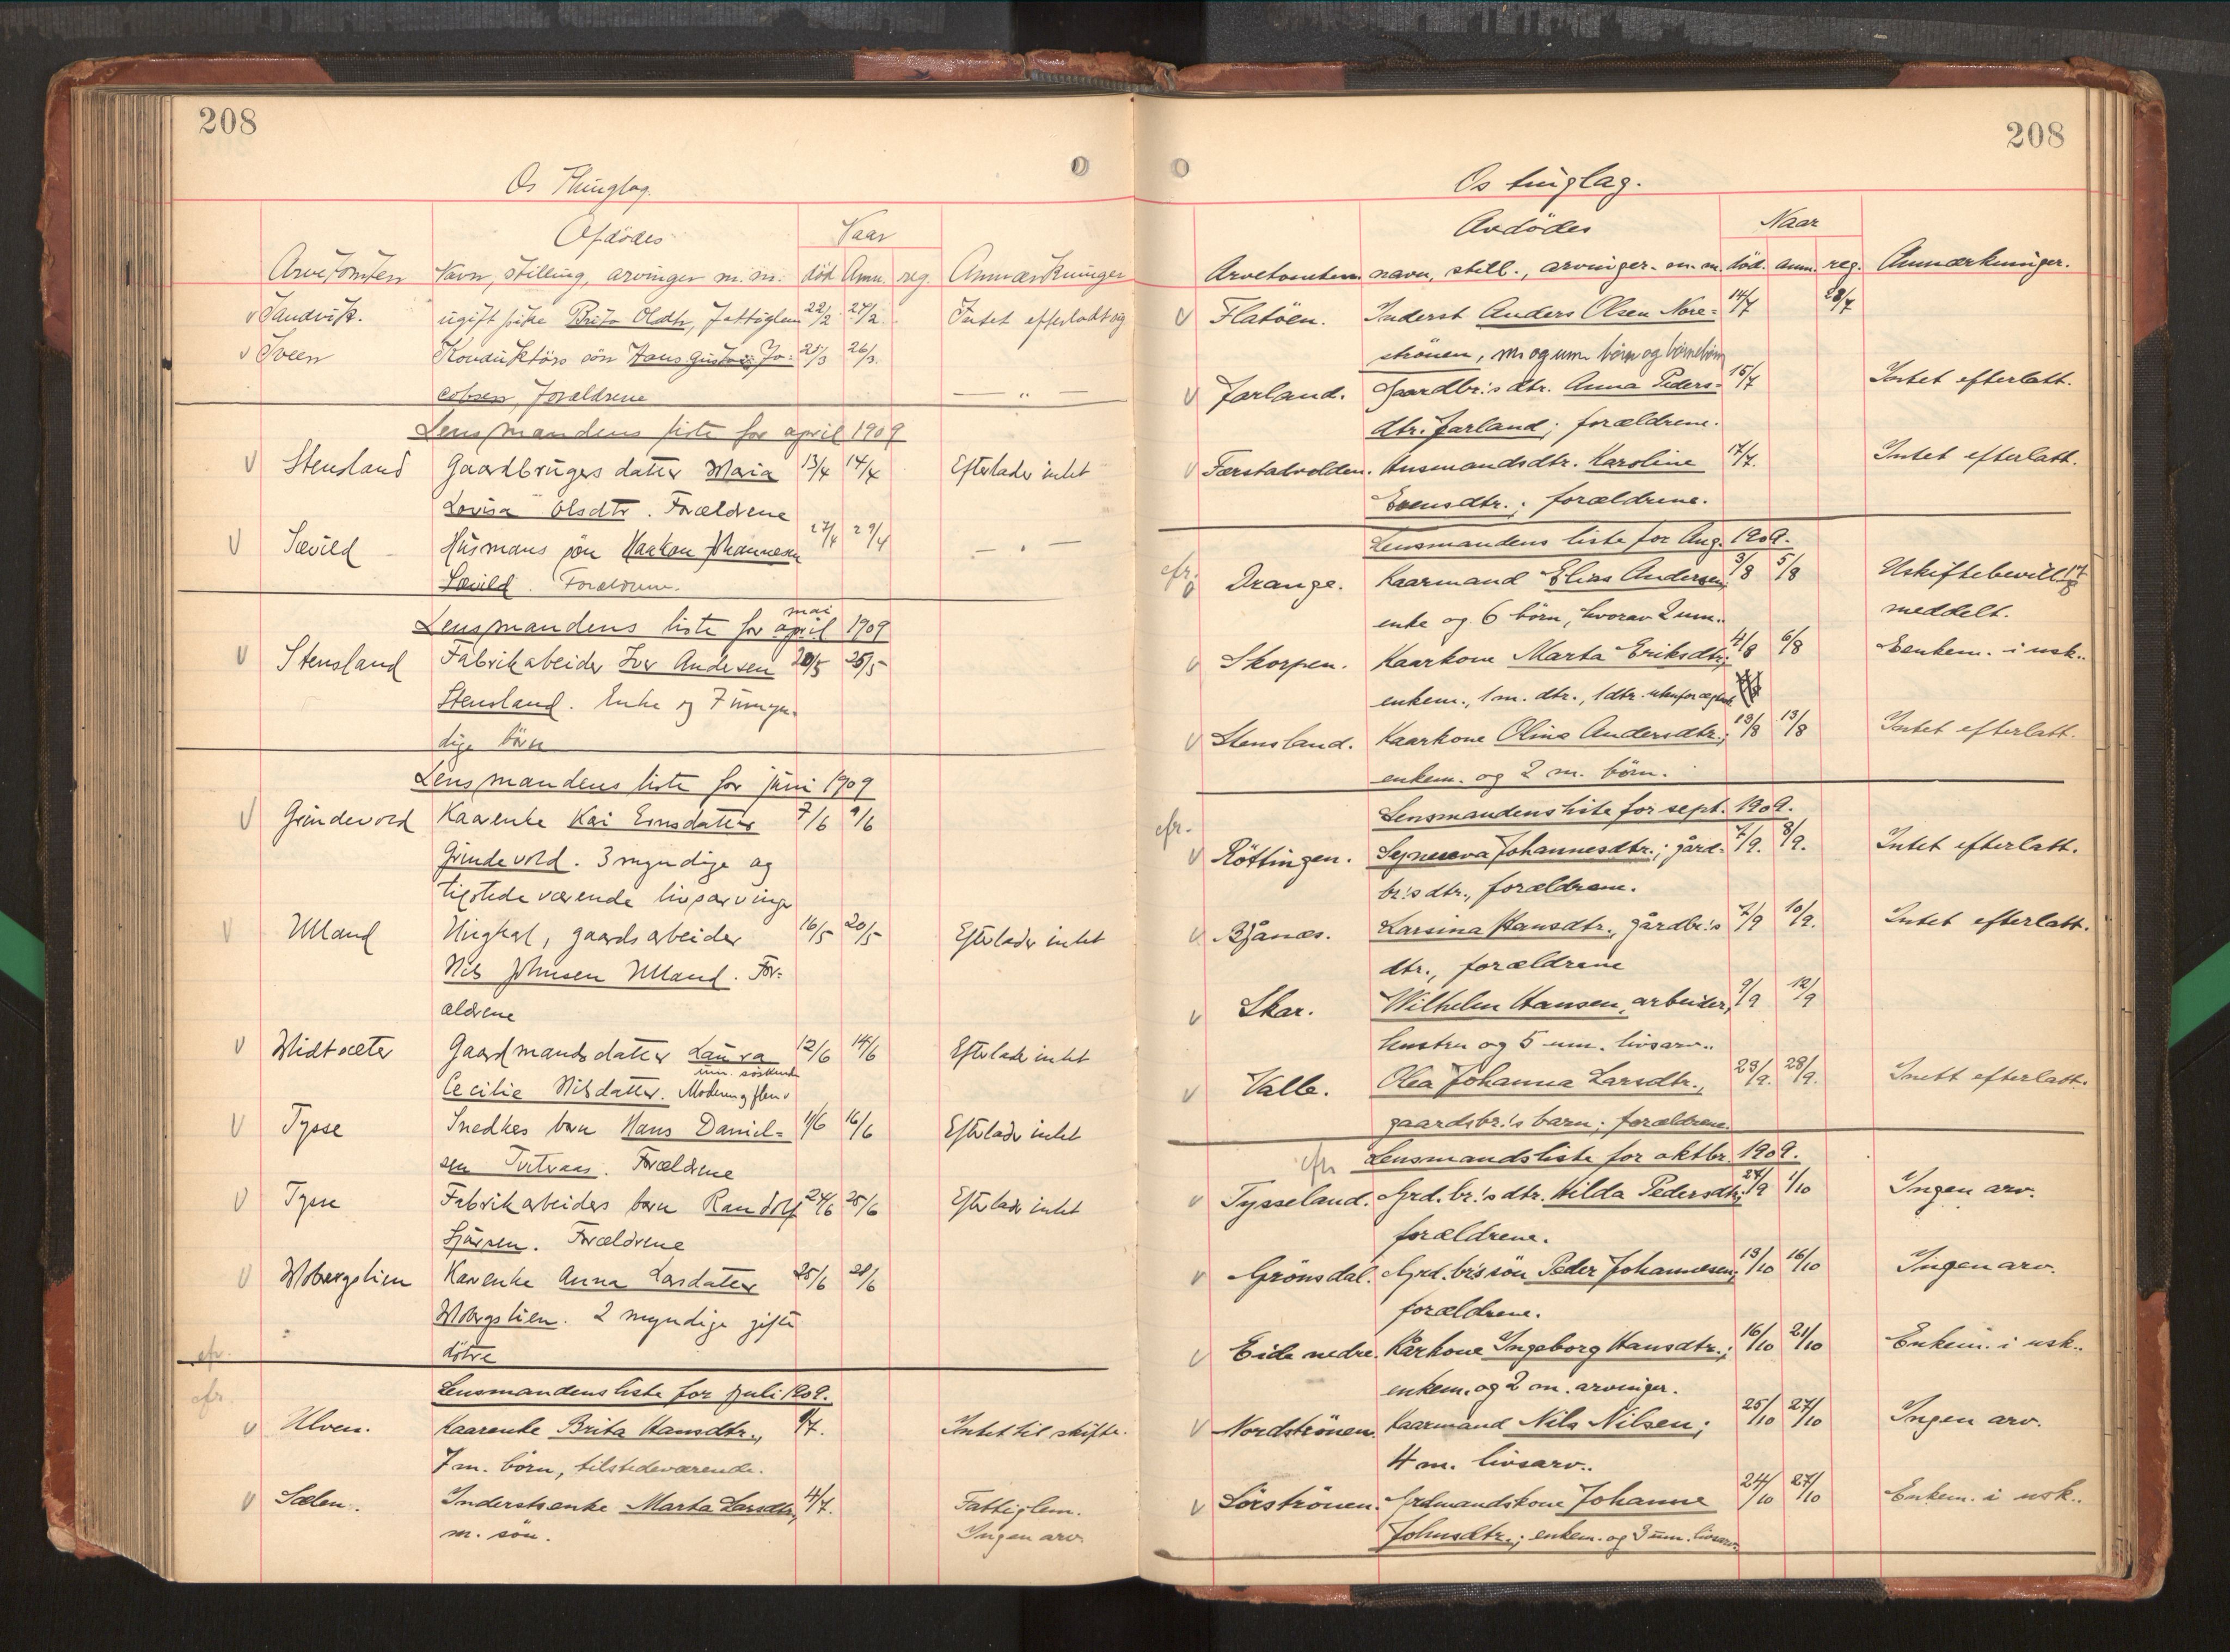 208
Os Thinglag.
Afdödes Naar
Arvetomten Navn, stilling, arvinger m.m. död Anm. reg. Anmærkninger
v Sandvik. ugift pike Brita Olsdtr, Fattiglem 22/2 27/2 Intet efterladt sig
v Sveen Konduktörs sön Hans Gustav Ja= 25/3 26/3
cobsen, Forældrene — „ —
Lensmandens liste for april 1909
v Stensland Gaardbrugers datter Maria 13/4 14/4 Efterlader intet
Lovisa Olsdtr. Forældrene
v Sævild Husmans sön Haakon Johannesen 27/4 29/4 — „ —
Sævild. Forældrene.
mai
Lensmandens liste for april 1909
v Stensland Fabrikabeider Iver Andersen 20/5 25/5
Stensland. Enke og 7 umyn-
dige börn
Lensmandens liste for juni 1909
v Grindevold Kaarenke Kari Ernsdatter 7/6 9/6
Grindevold. 3 myndige og
tilstede værende livsarvinger
v Ulland Ungkal, gaardsarbeider 16/5 20/5 Efterlader intet
Nils Johnsen Ulland. For-
ældrene
v Midtsæter Gaardmands datter Laura 12/6 14/6 Efterlader intet
um. söskende
Cecilie Nilsdatter. Moderen og flere
v Tysse Snedkes barn Hans Daniel= 11/6 16/6 Efterlader intet
sen Tvetraas. Forældrene
v Tysse Fabrikarbeiders barn Randolf 24/6 25/6 Efterlader intet
Forældrene
v Mobergslien Kaarenke Anna Larsdatter 25/6 28/6
Mobergslien. 2 myndige gifte
cfr. dötre
cfr. Lensmandens liste for juli 1909.
v Ulven. Kaarenke Brita Hansdtr., 1/7. Intet til skifte.
7 m. börn, tilstedeværende.
v Sælen. Inderstenke Marta Larsdtr., 4/7. Fattiglem.
m. sön. Ingen arv
208
Os tinglag.
Avdödes Naar
Arvetomten navn, still., arvinger m.m. död. anm. reg. Anmærkninger.
v Flatöen. Inderst Anders Olsen Nore= 14/7 28/7
strönen, m. og um. börn og börnebörn
v Jarland. Gaardbr.'s dtr. Anna Peders= 15/7 Intet efterlatt.
dtr. Jarland; forældrene.
v Færstadvolden. Husmandsdtr. Karoline 17/7. Intet efterlatt.
Evensdtr.; forældrene.
Lensmandens liste for Aug. 1909.
cfr. v Drange. Kaarmand Elias Andersen; 3/8 5/8 Uskiftebevill. 17/8
enke og 6 börn, hvorav 2 um. meddelt.
v Skorpen. Kaarkone Marta Eriksdtr; 4/8 6/8 Eenkem. i usk..
enkem., 1 m. dtr., 1 dtr. utenfor ægtesk.
v Stensland. Kaarkone Olina Andersdtr.; 13/8 13/8 Intet efterlatt.
enkem. og 2 m. börn.
cfr. Lensmandens liste for sept. 1909.
v Röttingen. Synneva Johannesdtr.; gård- 7/9. 8/9. Intet efterlatt.
br.'s dtr., forældrene.
v Bjånæs. Larsina Hansdtr., gårdbr.'s 7/9 10/9. Intet efterlatt.
dtr., forældrene
v Skar. Wilhelm Hansen, arbeider, 9/9 12/9
hustru og 5 um. livsarv..
v Valle. Olea Johanna Larsdtr., 23/9. 28/9. Inett efterlatt.
gaardsbr.'s barn; forældrene.
cfr Lensmandsliste for oktbr. 1909.
v Tysseland. Grd. br.'s dtr. Hilda Pedersdtr; 27/9 1/10 Ingen arv.
forældrene.
v Grönsdal. Grd. br's sön Peder Johannesen; 13/10 16/10 Ingen arv.
forældrene.
v Eide nedre. Kårkone Ingeborg Hansdtr.; 16/10 21/10 Enkem. i usk..
enkem. og 2 m. arvinger.
v Nordströnen. Kaarmand Nils Nilsen; 25/10 27/10 Ingen arv.
4 m. livsarv..
v Sörströnen. Grdmandskone Johanne 24/10 27/10 Enkem. i usk..
Johnsdtr.; enkem. og 3 um. livsarv.